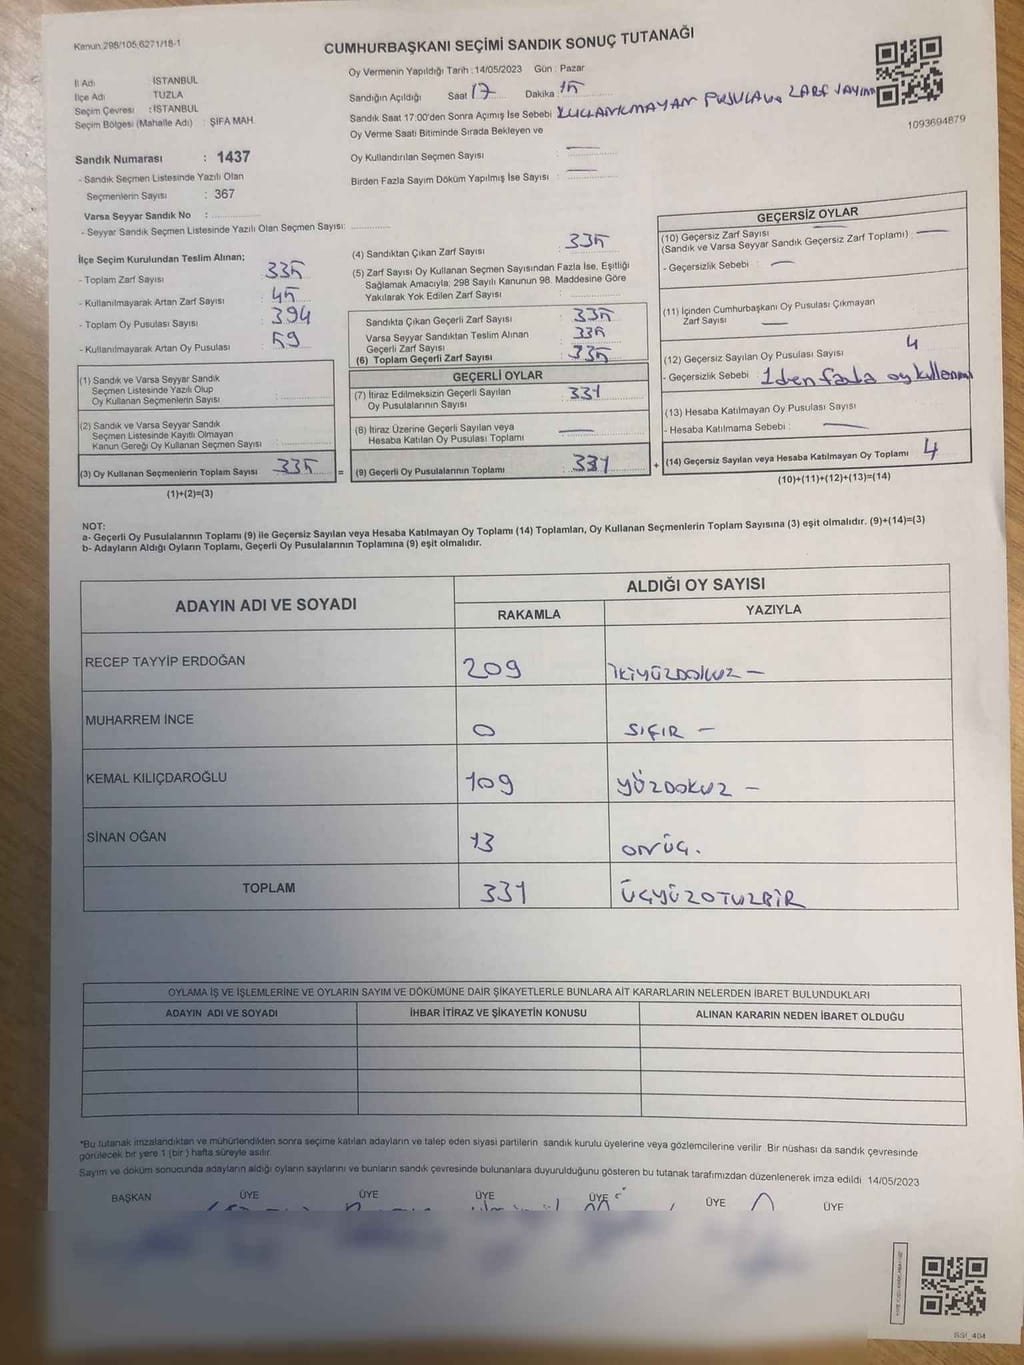 Kanun.298/105,6271/18-1
CUMHURBAŞKANI SEÇİMİ SANDIK SONUÇ TUTANAĞI
İl Adı : İSTANBUL
İlçe Adı : TUZLA
Seçim Çevresi : İSTANBUL
Seçim Bölgesi (Mahalle Adı) : ŞİFA MAH.
Oy Vermenin Yapıldığı Tarih :14/05/2023 Gün : Pazar
Sandığın Açıldığı Saat 17 Dakika 15
Sandık Saat 17:00'den Sonra Açımış İse Sebebi KULLANILMAYAN PUSULA VE ZARF SAYIMI
Oy Verme Saati Bitiminde Sırada Bekleyen ve
Oy Kullandırılan Seçmen Sayısı :
Birden Fazla Sayım Döküm Yapılmış İse Sayısı :
1093694879
Sandık Numarası : 1437
- Sandık Seçmen Listesinde Yazılı Olan
Seçmenlerin Sayısı : 367
Varsa Seyyar Sandık No :
- Seyyar Sandık Seçmen Listesinde Yazılı Olan Seçmen Sayısı:
İlçe Seçim Kurulundan Teslim Alınan;
- Toplam Zarf Sayısı : 335
- Kullanılmayarak Artan Zarf Sayısı : 45
- Toplam Oy Pusulası Sayısı : 394
- Kullanılmayarak Artan Oy Pusulası : 59
(1) Sandık ve Varsa Seyyar Sandık
Seçmen Listesinde Yazılı Olup
Oy Kullanan Seçmenlerin Sayısı :
(2) Sandık ve Varsa Seyyar Sandık
Seçmen Listesinde Kayıtlı Olmayan
Kanun Gereği Oy Kullanan Seçmen Sayısı :
(3) Oy Kullanan Seçmenlerin Toplam Sayısı : 335 =
(1)+(2)=(3)
(4) Sandıktan Çıkan Zarf Sayısı : 335
(5) Zarf Sayısı Oy Kullanan Seçmen Sayısından Fazla İse, Eşitliği
Sağlamak Amacıyla; 298 Sayılı Kanunun 98. Maddesine Göre
Yakılarak Yok Edilen Zarf Sayısı :
Sandıkta Çıkan Geçerli Zarf Sayısı : 335
Varsa Seyyar Sandıktan Teslim Alınan
Geçerli Zarf Sayısı : 335
(6) Toplam Geçerli Zarf Sayısı : 335
GEÇERLİ OYLAR
(7) İtiraz Edilmeksizin Geçerli Sayılan
Oy Pusulalarının Sayısı : 331
(8) İtiraz Üzerine Geçerli Sayılan veya
Hesaba Katılan Oy Pusulası Toplamı :
(9) Geçerli Oy Pusulalarının Toplamı : 331 +
GEÇERSİZ OYLAR
(10) Geçersiz Zarf Sayısı
(Sandık ve Varsa Seyyar Sandık Geçersiz Zarf Toplamı) :
- Geçersizlik Sebebi :
(11) İçinden Cumhurbaşkanı Oy Pusulası Çıkmayan
Zarf Sayısı :
(12) Geçersiz Sayılan Oy Pusulası Sayısı : 4
- Geçersizlik Sebebi : 1 den fazla oy kullanma
(13) Hesaba Katılmayan Oy Pusulası Sayısı :
- Hesaba Katılmama Sebebi :
(14) Geçersiz Sayılan veya Hesaba Katılmayan Oy Toplamı : 4
(10)+(11)+(12)+(13)=(14)
NOT:
a- Geçerli Oy Pusulalarının Toplamı (9) ile Geçersiz Sayılan veya Hesaba Katılmayan Oy Toplamı (14) Toplamları, Oy Kullanan Seçmenlerin Toplam Sayısına (3) eşit olmalıdır. (9)+(14)=(3)
b- Adayların Aldığı Oyların Toplamı, Geçerli Oy Pusulalarının Toplamına (9) eşit olmalıdır.
ADAYIN ADI VE SOYADI
ALDIĞI OY SAYISI
RAKAMLA YAZIYLA
RECEP TAYYİP ERDOĞAN 209 İKİYÜZDOKUZ –
MUHARREM İNCE 0 SIFIR –
KEMAL KILIÇDAROĞLU 109 YÜZDOKUZ –
SİNAN OĞAN 13 ONÜÇ.
TOPLAM 331 ÜÇYÜZOTUZBİR
OYLAMA İŞ VE İŞLEMLERİNE VE OYLARIN SAYIM VE DÖKÜMÜNE DAİR ŞİKAYETLERLE BUNLARA AİT KARARLARIN NELERDEN İBARET BULUNDUKLARI
ADAYIN ADI VE SOYADI İHBAR İTİRAZ VE ŞİKAYETİN KONUSU ALINAN KARARIN NEDEN İBARET OLDUĞU
*Bu tutanak imzalandıktan ve mühürlendikten sonra seçime katılan adayların ve talep eden siyasi partilerin sandık kurulu üyelerine veya gözlemcilerine verilir. Bir nüshası da sandık çevresinde
görülecek bir yere 1 (bir) hafta süreyle asılır.
Sayım ve döküm sonucunda adayların aldığı oyların sayılarını ve bunların sandık çevresinde bulunanlara duyurulduğunu gösteren bu tutanak tarafımızdan düzenlenerek imza edildi. 14/05/2023
BAŞKAN ÜYE ÜYE ÜYE ÜYE ÜYE ÜYE
SSI_404